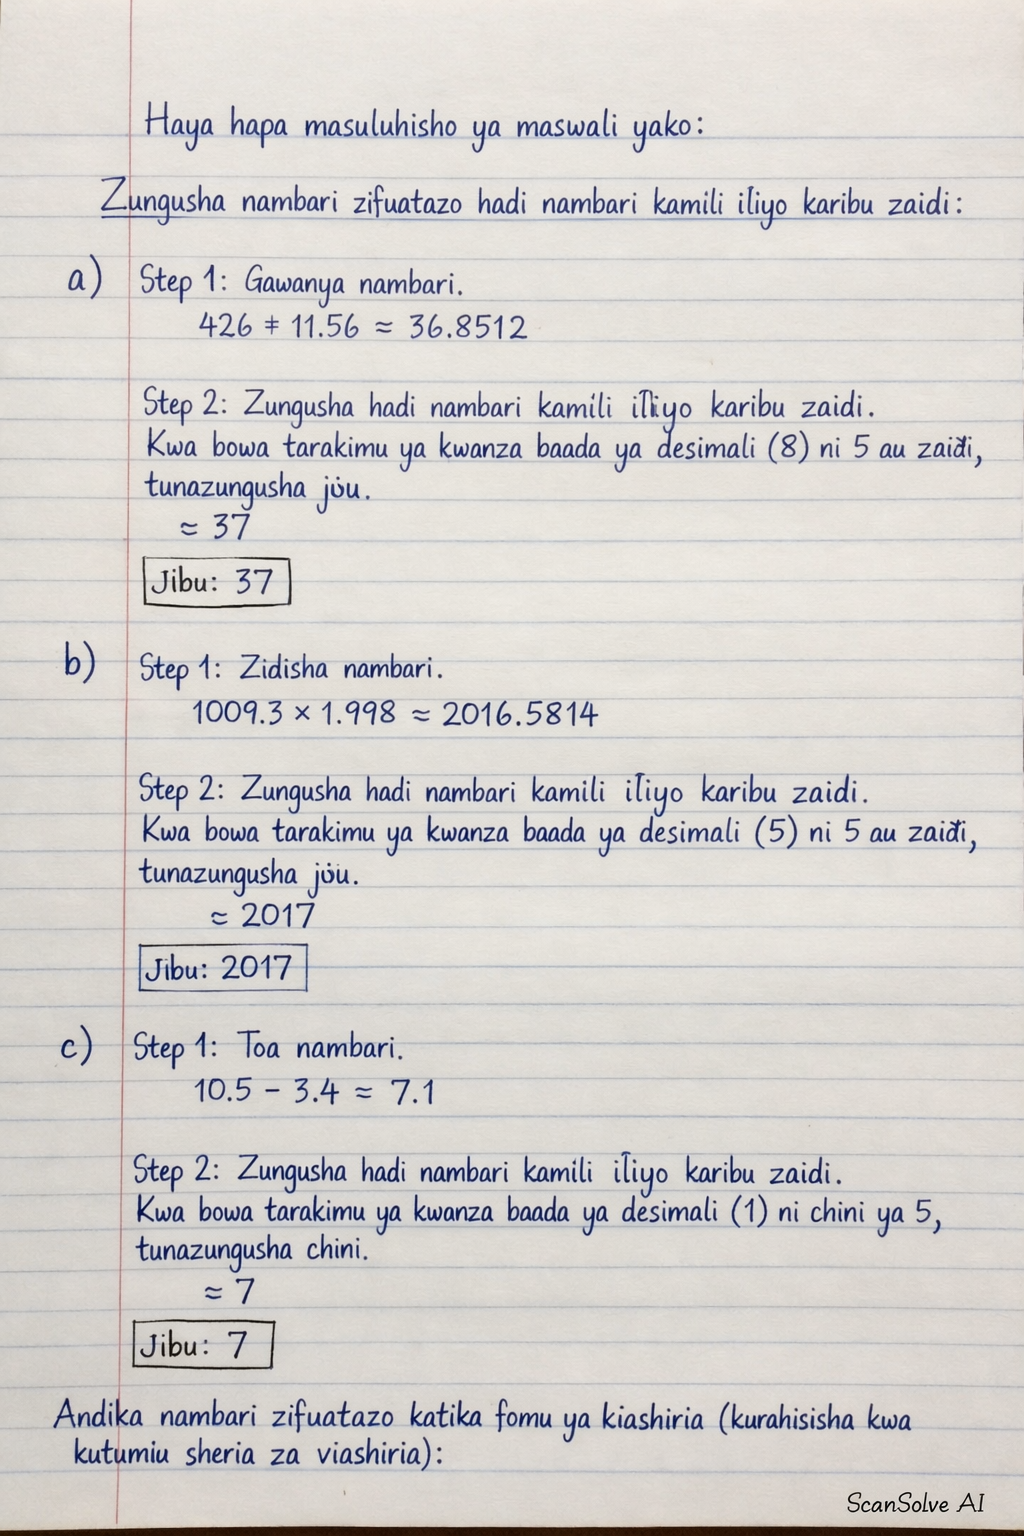 Haya hapa masuluhisho ya maswali yako:
Zungusha nambari zifuatazo hadi nambari kamili iliyo karibu zaidi:
a) Step 1: Gawanya nambari.
426 ÷ 11.56 ≈ 36.8512
Step 2: Zungusha hadi nambari kamili iliyo karibu zaidi.
Kwa bowa tarakimu ya kwanza baada ya desimali (8) ni 5 au zaidi,
tunazungusha juu.
≈ 37
Jibu: 37
b) Step 1: Zidisha nambari.
1009.3 × 1.998 ≈ 2016.5814
Step 2: Zungusha hadi nambari kamili iliyo karibu zaidi.
Kwa bowa tarakimu ya kwanza baada ya desimali (5) ni 5 au zaidi,
tunazungusha juu.
≈ 2017
Jibu: 2017
c) Step 1: Toa nambari.
10.5 - 3.4 ≈ 7.1
Step 2: Zungusha hadi nambari kamili iliyo karibu zaidi.
Kwa bowa tarakimu ya kwanza baada ya desimali (1) ni chini ya 5,
tunazungusha chini.
≈ 7
Jibu: 7
Andika nambari zifuatazo katika fomu ya kiashiria (kurahisisha kwa
kutumiu sheria za viashiria):
ScanSolve AI